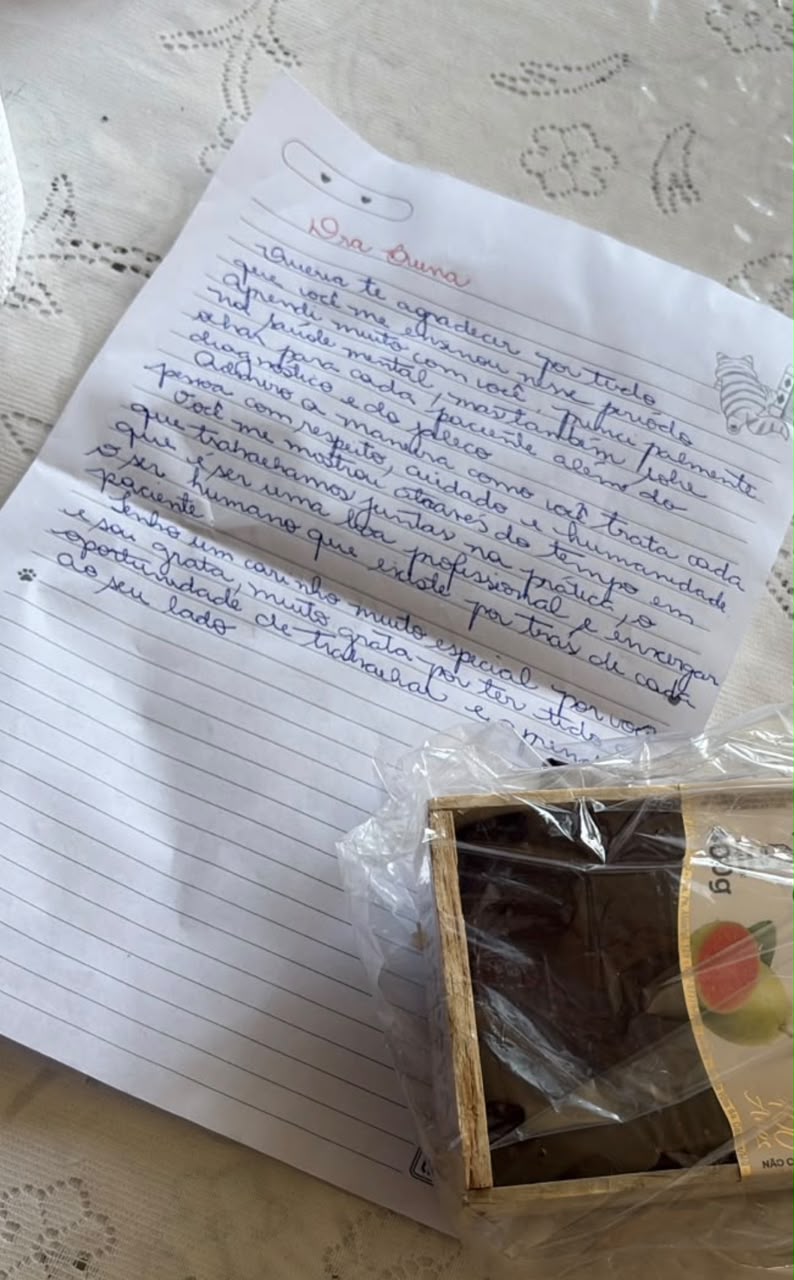 Dra Bruna
Queria te agradecer por tudo
que você me ensinou nesse período
Aprendi muito com você, principalmente
na saúde mental, mas também sobre
olhar para cada paciente além do
diagnóstico e do jaleco
Admiro a maneira como você trata cada
pessoa com respeito, cuidado e humanidade.
Você me mostrou através do tempo em
que trabalhamos juntas na prática, o
que é ser uma boa profissional e enxergar
o ser humano que existe por trás de cada
paciente.
Tenho um carinho muito especial por você
e sou grata, muito grata por ter tido a
oportunidade de trabalhar e
ao seu lado
00g
NÃO CO